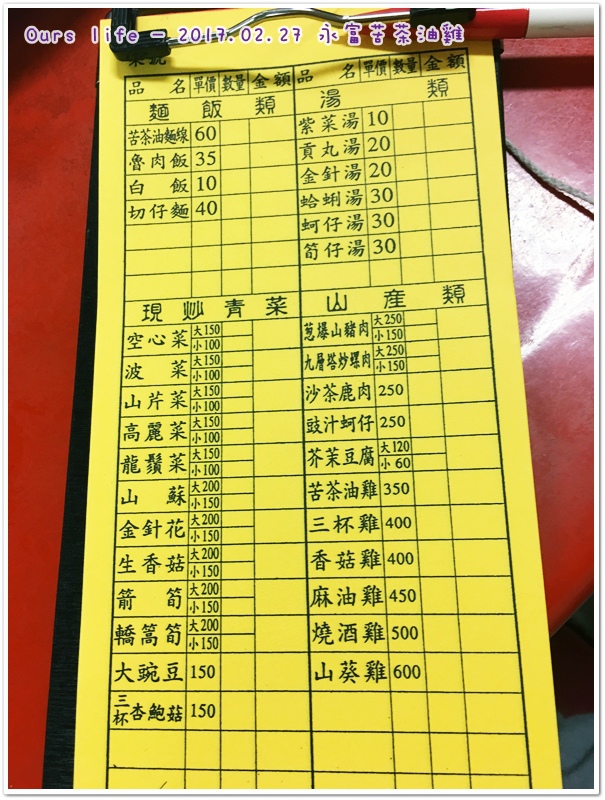 Ours life - 2017.02.27 永富苦茶油雞
品 名 單價 數量 金額 品 名 單價 數量 金額
麵 飯 類
苦茶油麵線 60
魯肉飯 35
白 飯 10
切仔麵 40
湯 類
紫菜湯 10
貢丸湯 20
金針湯 20
蛤蜊湯 30
蚵仔湯 30
筍仔湯 30
現 炒 青 菜
空心菜 大150 小100
波 菜 大150 小100
山芹菜 大150 小100
高麗菜 大150 小100
龍鬚菜 大150 小100
山 蘇 大200 小150
金針花 大200 小150
生香菇 大200 小150
箭 筍 大200 小150
轎篙筍 大200 小150
大豌豆 150
三杯杏鮑菇 150
山 產 類
蔥爆山豬肉 大250 小150
九層塔炒螺肉 大250 小150
沙茶鹿肉 250
豉汁蚵仔 250
芥茉豆腐 大120 小60
苦茶油雞 350
三杯雞 400
香菇雞 400
麻油雞 450
燒酒雞 500
山葵雞 600